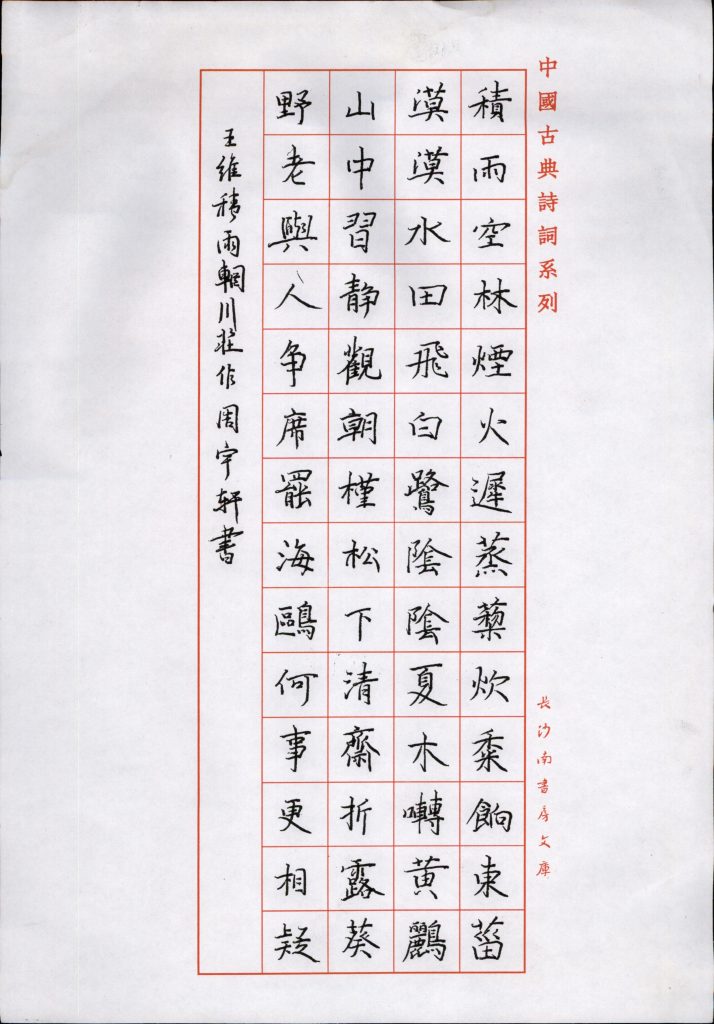 中國古典詩詞系列
長沙南書房文庫
積雨空林煙火遲蒸藜炊黍餉東菑
漠漠水田飛白鷺陰陰夏木囀黃鸝
山中習靜觀朝槿松下清齋折露葵
野老與人爭席罷海鷗何事更相疑
王維積雨輞川莊作周宇軒書